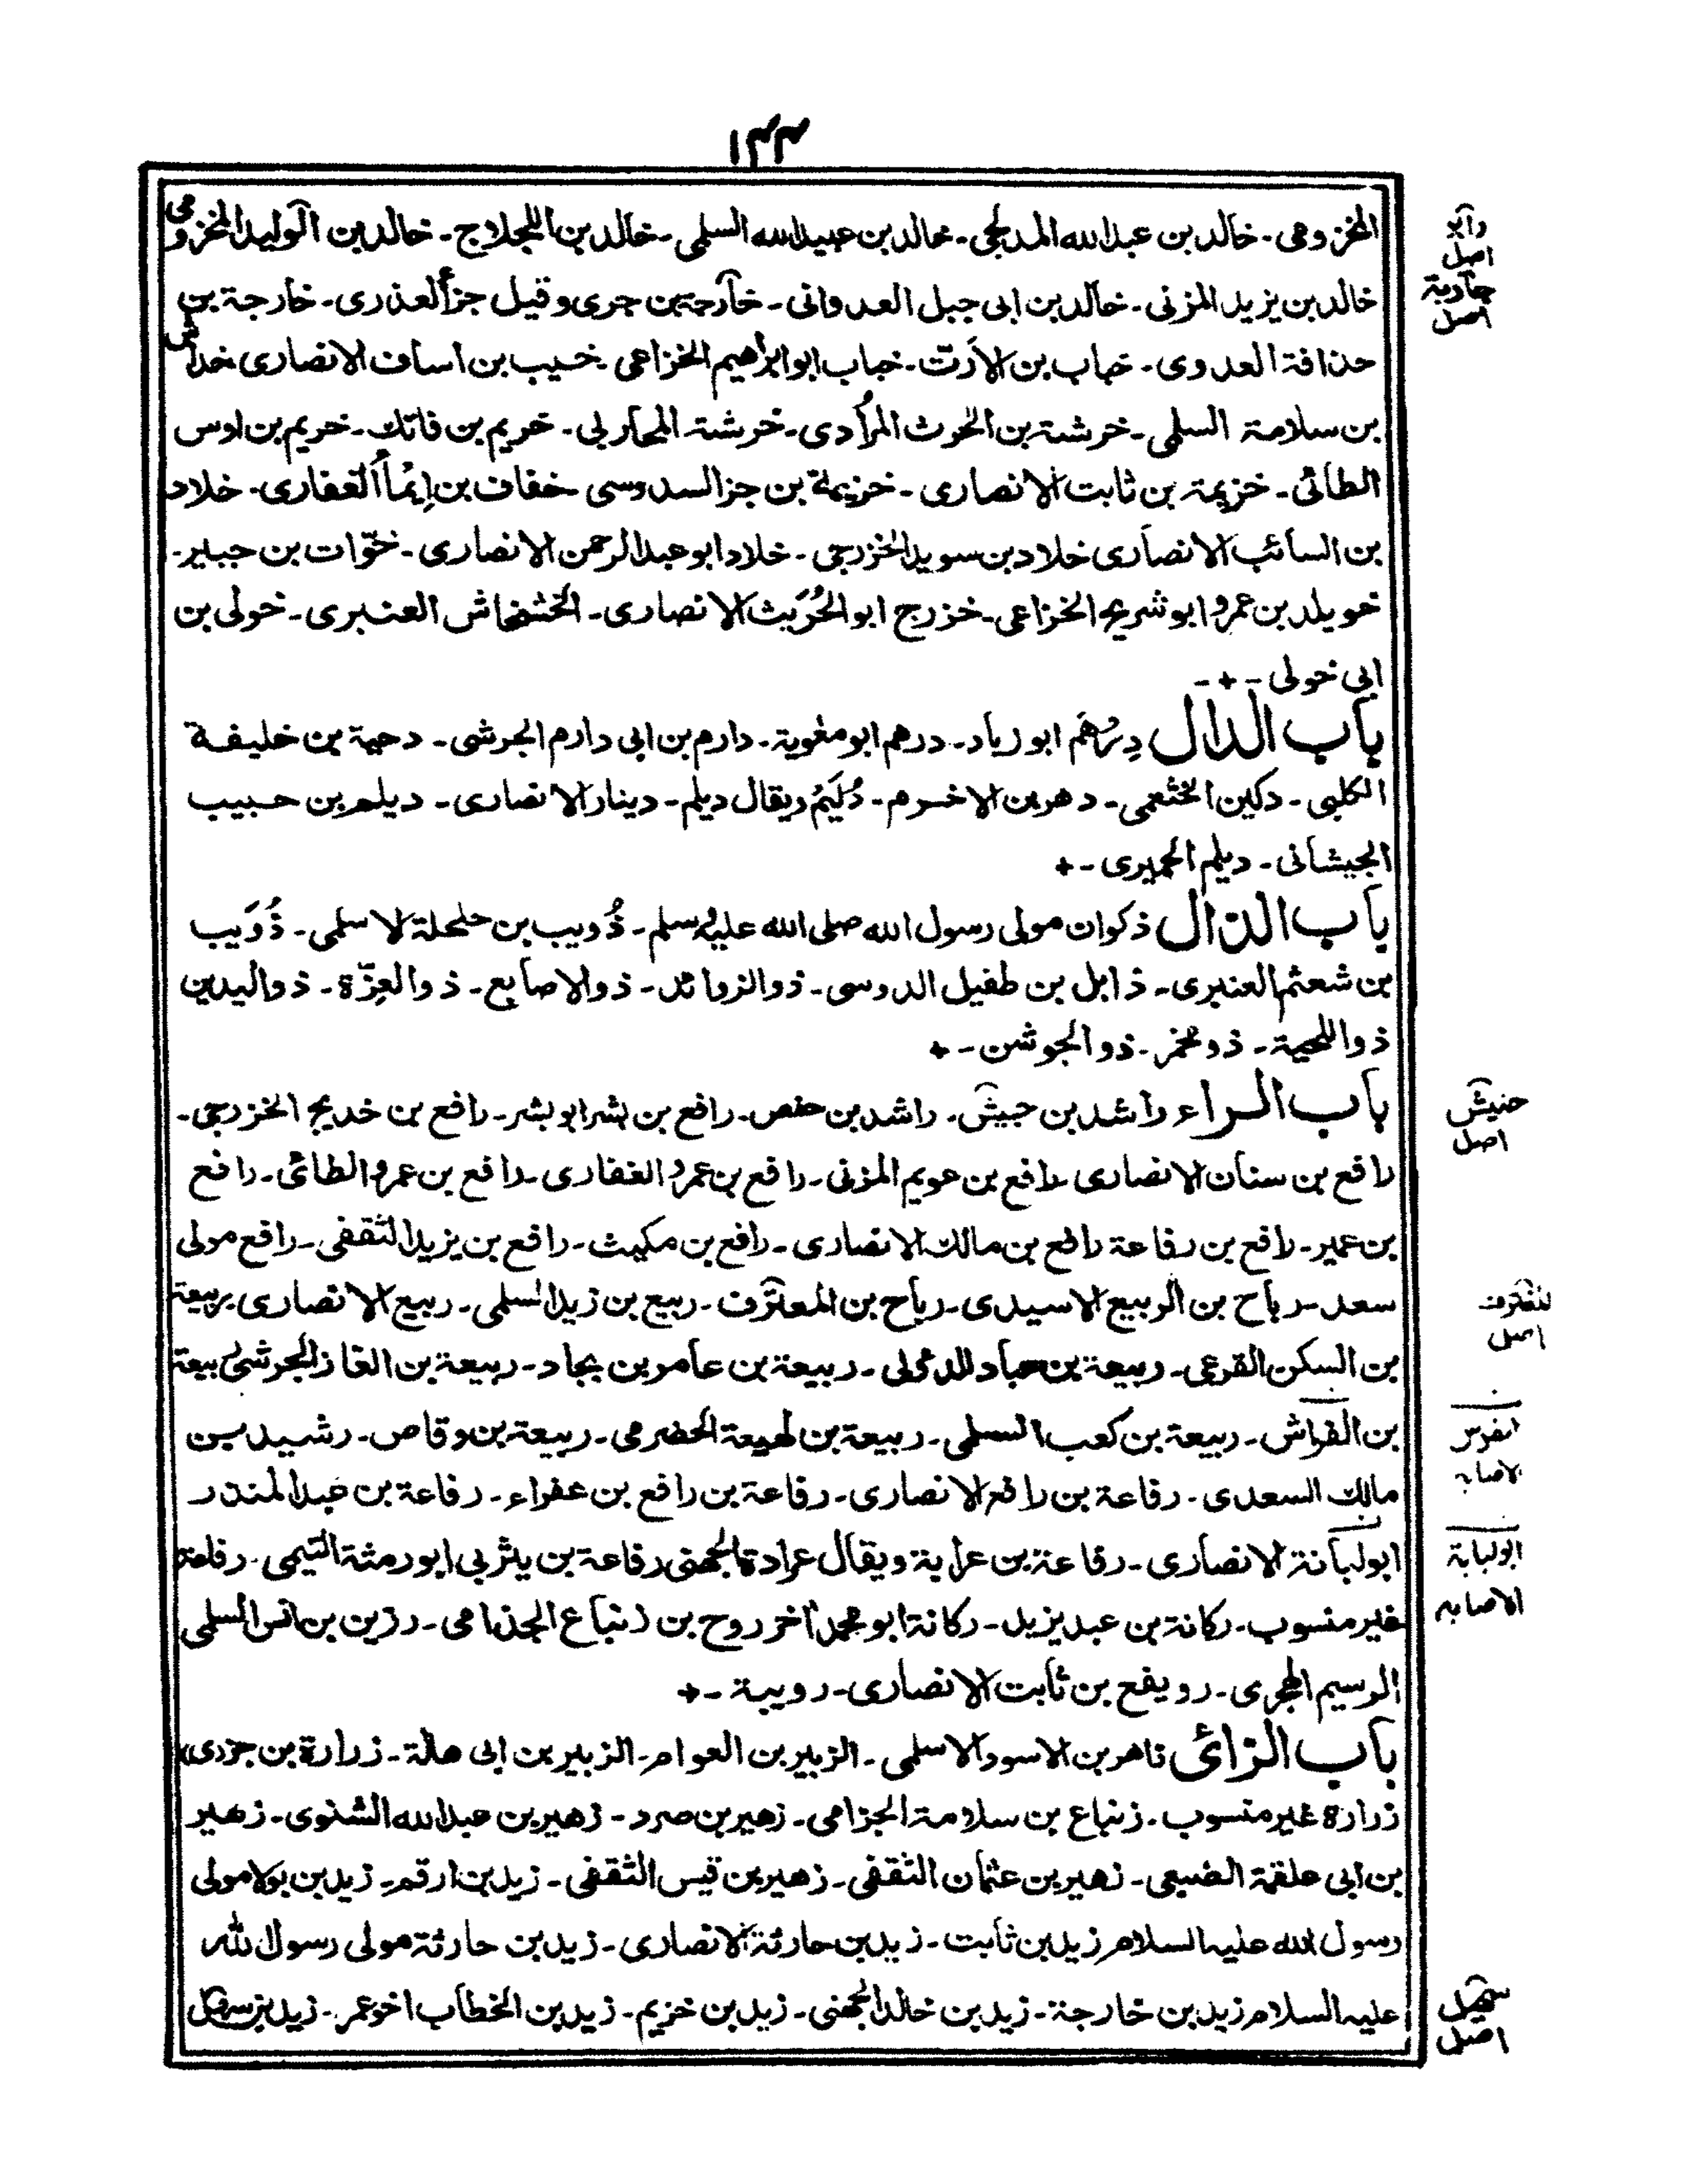 المخزومى۔ خالد بن عبدالله المدلجى۔ خالد بن عبيدالله السلمى۔ خالد بن اللجلاج۔ خالد بن الوليد المخزومى
خالد بن يزيد المزنى۔ خالد بن ابى جبل العدوانى۔ خارجة بن جرى وقيل جزأ العذرى۔ خارجة بن
حذافة العدوى۔ خباب بن الارتّ۔ خباب ابو ابراهيم الخزاعى۔ خبيب بن اساف الانصارى خداش
بن سلامة السلمى۔ خرشة بن الحرث المرادى۔ خرشة المحاربى۔ خريم بن فاتك۔ خريم بن اوس
الطائى۔ خزيمة بن ثابت الانصارى۔ خزيمة بن جز السدوسى۔ خفاف بن اِيْمأ الغفارى۔ خلاد
بن السائب الانصارى خلاد بن سويد الخزرجى۔ خلاد ابو عبد الرحمن الانصارى۔ خوّات بن جبير۔
خويلد بن عمرو ابو شريح الخزاعى۔ خزرج ابو الحُرَيث الانصارى۔ الخشخاش العنبرى۔ خولى بن
ابى خولى۔+۔
باب الدال دِرْهَم ابو زياد۔ درهم ابو معٰوية۔ دارم بن ابى دارم الجرشى۔ دحية بن خليفة
الكلبى۔ دكين الخثعمى۔ دهر بن الاخرم۔ دُلَيْمُ ويقال ديلم۔ دينار الانصارى۔ ديلم بن حبيب
الجيشانى۔ ديلم الحميرى۔+
باب الذال ذكوان مولى رسول الله صلى الله عليه وسلم۔ ذُويب بن حلحلة الاسلمى۔ ذُوَيب
بن شعثم العنبرى۔ ذابل بن طفيل الدوسى۔ ذو الزوائد۔ ذو الاصابع۔ ذو العِزّة۔ ذو اليدين
ذو اللحية۔ ذو مخمر۔ ذو الجوشن۔+
باب الراء راشد بن حبيش۔ راشد بن حفص۔ رافع بن بشر ابو بشر۔ رافع بن خديج الخزرجى۔
رافع بن سنان الانصارى۔ رافع بن عويم المزنى۔ رافع بن عمرو الغفارى۔ رافع بن عمرو الطائى۔ رافع
بن عمير۔ رافع بن رفاعة رافع بن مالك الانصارى۔ رافع بن مكيث۔ رافع بن يزيد الثقفى۔ رافع مولى
سعد۔ رباح بن الربيع الاسيدى۔ رباح بن المعترف۔ ربيع بن زيد السلمى۔ ربيع الانصارى ربيعة
بن السكن القرعى۔ ربيعة بن عباد الدئولى۔ ربيعة بن عامر بن بجاد۔ ربيعة بن الغاز الجرشى ربيعة
بن الفراش۔ ربيعة بن كعب السلمى۔ ربيعة بن لهيعة الحضرمى۔ ربيعة بن وقاص۔ رشيد بن
مالك السعدى۔ رفاعة بن رافع الانصارى۔ رفاعة بن رافع بن عفراء۔ رفاعة بن عبد المنذر
ابو لبانة الانصارى۔ رفاعة بن عراية ويقال عرادة الجهنى رفاعة بن يثربى ابو رمثة التيمى۔ رفاعة
غير منسوب۔ ركانة بن عبد يزيد۔ ركانة ابو محمد اٰخر روح بن زنباع الجذامى۔ رزين بن انس السلمى
الرسيم الهجرى۔ رويفع بن ثابت الانصارى۔ رويبة۔+
باب الزائ زاهر بن الاسود الاسلمى۔ الزبير بن العوام۔ الزبير بن ابى هالة۔ زرارة بن جزدى
زرارة غير منسوب۔ زنباع بن سلامة الجزامى۔ زهير بن صرد۔ زهير بن عبد الله الشنوى۔ زهير
بن ابى علقمة الضبعى۔ زهير بن عثمان الثقفى۔ زهير بن قيس الثقفى۔ زيد بن ارقم۔ زيد بن بولا مولى
رسول الله عليه السلام زيد بن ثابت۔ زيد بن حارثة الانصارى۔ زيد بن حارثة مولى رسول الله
عليه السلام زيد بن خارجة۔ زيد بن خالد الجهنى۔ زيد بن خزيم۔ زيد بن الخطاب اخو عمر۔ زيد بن
اصل
اصل
حنيش
اصل
اصل
الاصابه
ابولبابة
الاصابه
سهيل
اصل